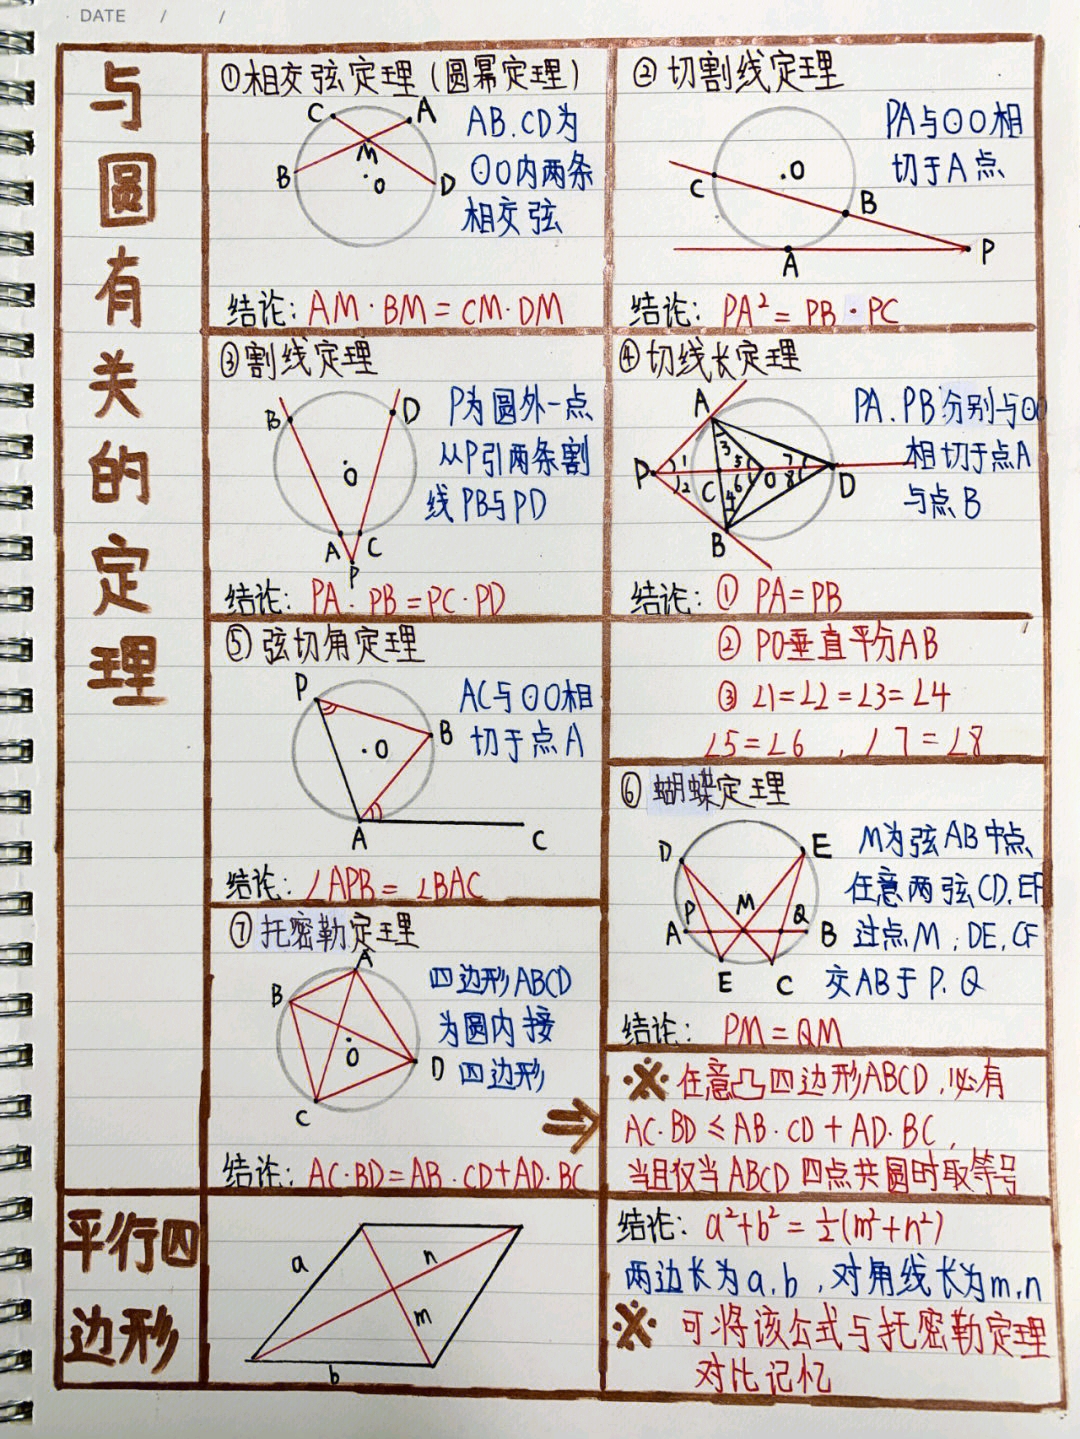 DATE / /
与圆有关的定理
①相交弦定理(圆幂定理)
C
A
M
B
O
D
AB.CD为
⊙O内两条
相交弦
结论: AM·BM=CM·DM
②切割线定理
O
C
B
A
P
PA与⊙O相
切于A点
结论: PA²=PB·PC
③割线定理
B
D
O
A
C
P
P为圆外一点
从P引两条割
线PB与PD
结论: PA·PB=PC·PD
④切线长定理
A
P
C
O
D
B
1
2
3
4
5
6
7
8
PA.PB分别与⊙O
相切于点A
与点B
结论: ① PA=PB
② PO垂直平分AB
③ ∠1=∠2=∠3=∠4
∠5=∠6 , ∠7=∠8
⑤弦切角定理
P
B
O
A
C
AC与⊙O相
切于点A
结论: ∠APB=∠BAC
⑥蝴蝶定理
D
E
P
M
Q
A
B
E
C
M为弦AB中点
任意两弦CD.EF
过点M;DE,CF
交AB于P.Q
结论: PM=QM
⑦托密勒定理
A
B
O
D
C
四边形ABCD
为圆内接
四边形
结论: AC·BD=AB·CD+AD·BC
⇒
※任意凸四边形ABCD,必有
AC·BD≤AB·CD+AD·BC,
当且仅当ABCD四点共圆时取等号
平行四
边形
a
n
m
b
结论: a²+b²=½(m²+n²)
两边长为a.b,对角线长为m.n
※ 可将该公式与托密勒定理
对比记忆